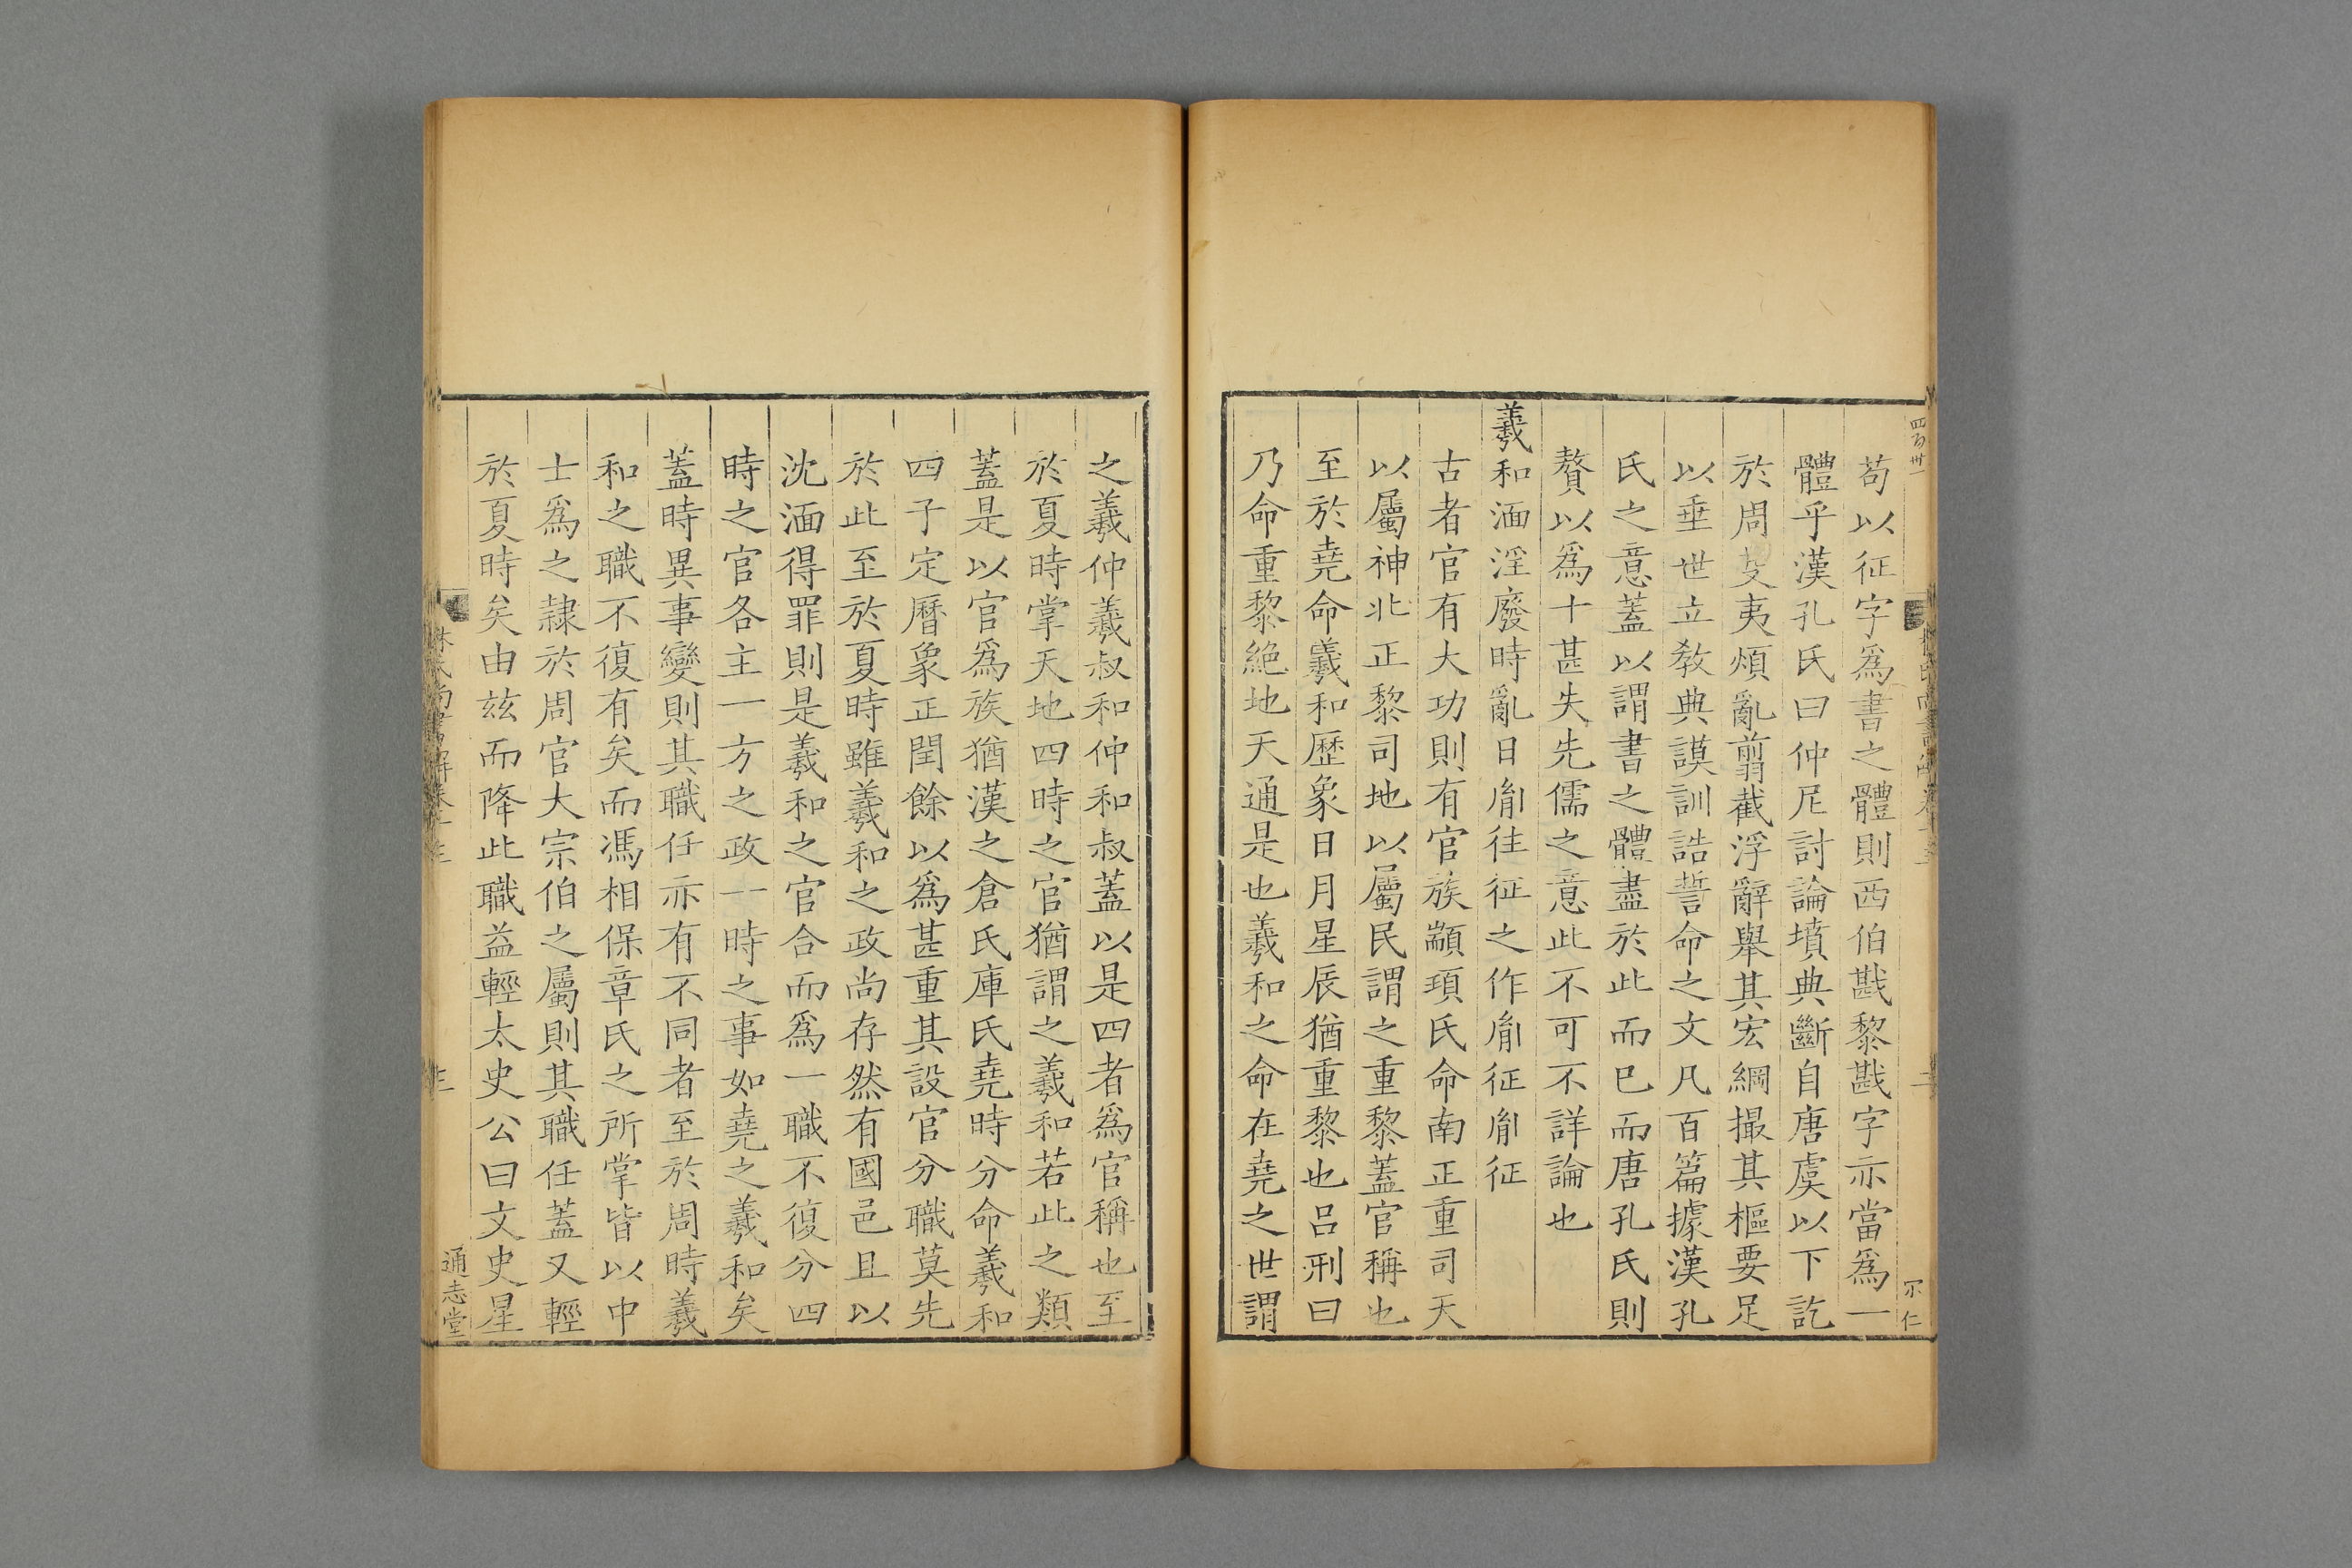 苟以征字爲書之體則西伯戡黎戡字亦當爲一
體乎漢孔氏曰仲尼討論墳典斷自唐虞以下訖
於周芟夷煩亂翦截浮辭舉其宏綱撮其樞要足
以垂世立教典謨訓誥誓命之文凡百篇據漢孔
氏之意蓋以謂書之體盡於此而已而唐孔氏則
贅以爲十甚失先儒之意此不可不詳論也
羲和湎淫廢時亂日胤往征之作胤征胤征
古者官有大功則有官族顓頊氏命南正重司天
以屬神北正黎司地以屬民謂之重黎蓋官稱也
至於堯命羲和歷象日月星辰猶重黎也呂刑曰
乃命重黎絕地天通是也羲和之命在堯之世謂
之羲仲羲叔和仲和叔蓋以是四者爲官稱也至
於夏時掌天地四時之官猶謂之羲和若此之類
蓋是以官爲族猶漢之倉氏庫氏堯時分命羲和
四子定曆象正閏餘以爲甚重其設官分職莫先
於此至於夏時雖羲和之政尚存然有國邑且以
沈湎得罪則是羲和之官合而爲一職不復分四
時之官各主一方之政一時之事如堯之羲和矣
蓋時異事變則其職任亦有不同者至於周時羲
和之職不復有矣而馮相保章氏之所掌皆以中
士爲之隷於周官大宗伯之屬則其職任蓋又輕
於夏時矣由茲而降此職益輕太史公曰文史星
通志堂